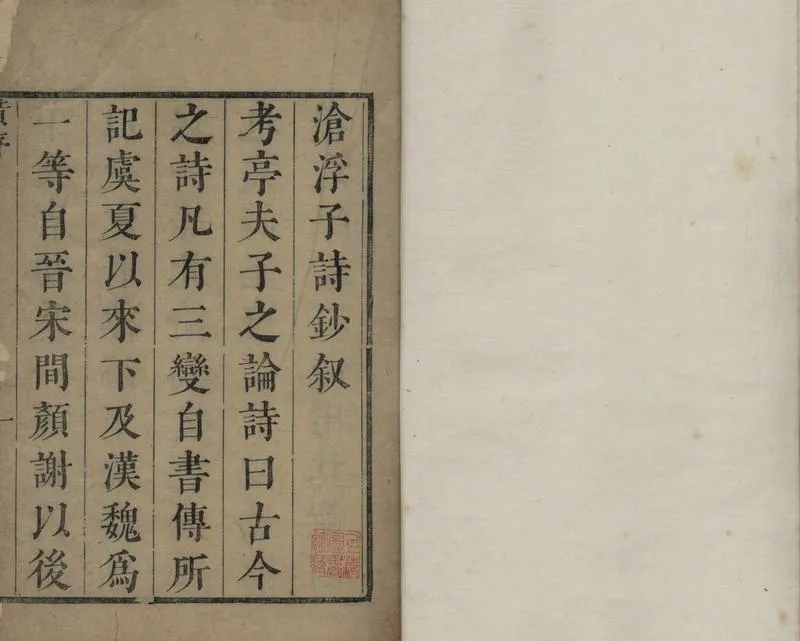 滄浮子詩鈔叙
考亭夫子之論詩曰古今
之詩凡有三變自書傳所
記虞夏以來下及漢魏為
一等自晉宋間顏謝以後
一